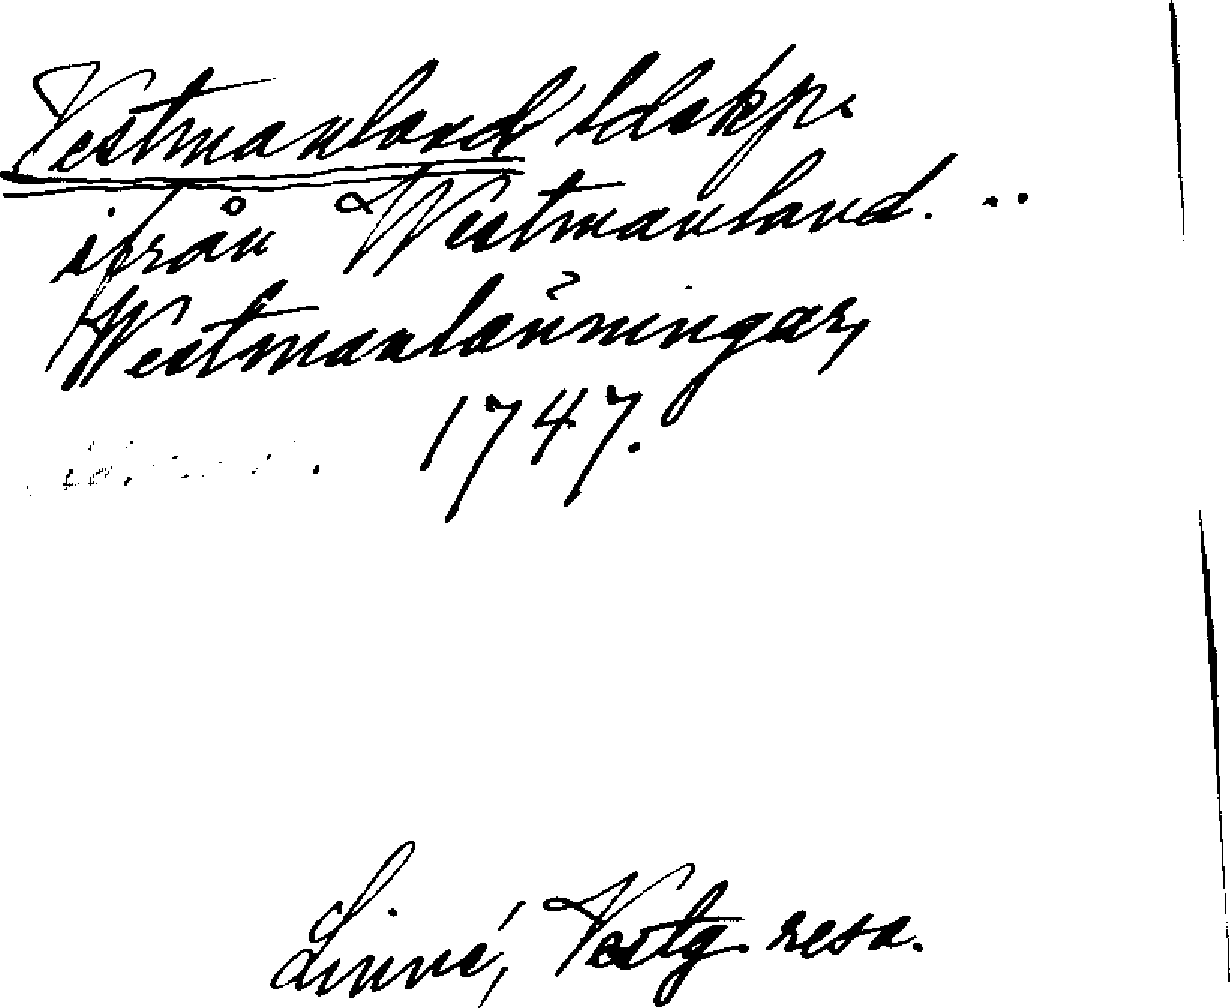 Vestmanland ldskp.
ifrån Westmanland. ..
Westmanlänningar,
1747.
Linné, Vestg. resa.